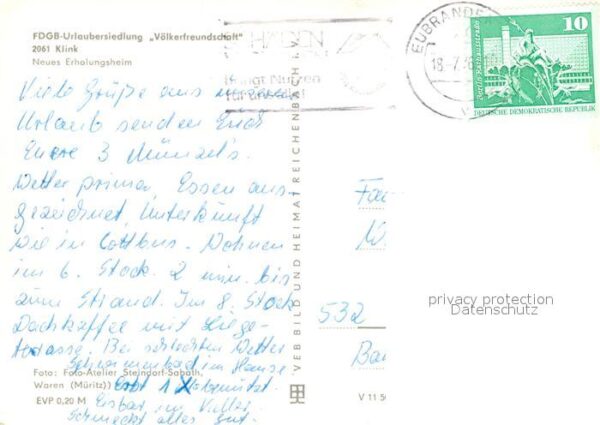 FDGB-Urlaubersiedlung „Völkerfreundschaft"
2061 Klink
Neues Erholungsheim
Viele Grüße aus unserem
Urlaub senden Euch
Euere 3 Münzel's.
Wetter prima, Essen aus-
gezeichnet, Unterkünft
wie in Cottbus. Wohnen
im 6. Stock. 2 min. bis
zum Strand. Im 8. Stock
Dachkaffee mit Liege-
terrasse. Bei schlechten Wetter
Schwimmbad im Hause.
Erst 1 X benützt.
Eisbar im Keller.
Schmeckt alles gut.
Foto: Foto-Atelier Steindorf-Sabath,
Waren (Müritz)
EVP 0,20 M
VEB BILD UND HEIMAT REICHENBACH i. V.
V 11 50
HADEN
bringt Nutzen
für
EUBRANDEN
18-7
10
Berlin Rathausstraße
DEUTSCHE DEMOKRATISCHE REPUBLIK
Fa
532
Ba
privacy protection
Datenschutz